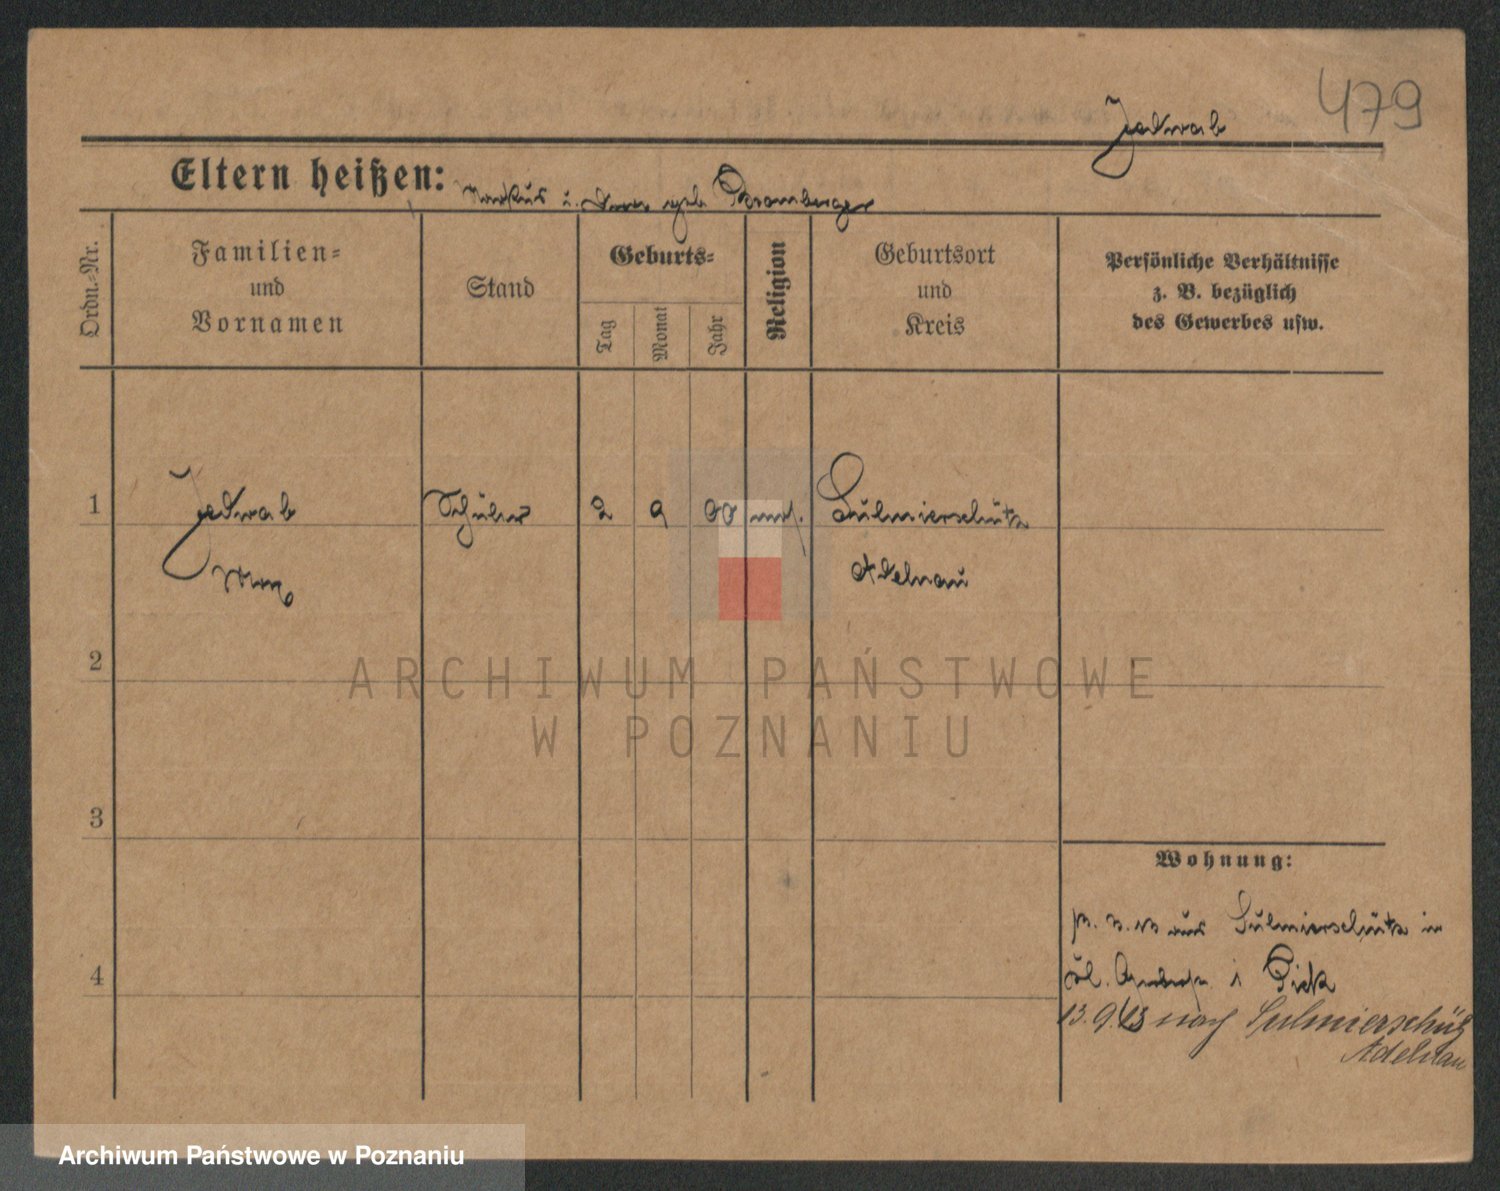 479
Jedwab
Eltern heißen: Markus u. geb. Bromberger
Ordn.-Nr.
Familien-
und
Vornamen
Stand
Geburts-
Tag
Monat
Jahr
Religion
Geburtsort
und
Kreis
Persönliche Verhältnisse
z. B. bezüglich
des Gewerbes usw.
1
Jedwab
Schüler
2
9
00
mos.
Sulmierschütz
Max
Adelnau
2
ARCHIWUM PAŃSTWOWE
W POZNANIU
3
Wohnung:
aus Sulmierschütz in
4
13.9.13 nach Sulmierschütz
Adelnau
Archiwum Państwowe w Poznaniu